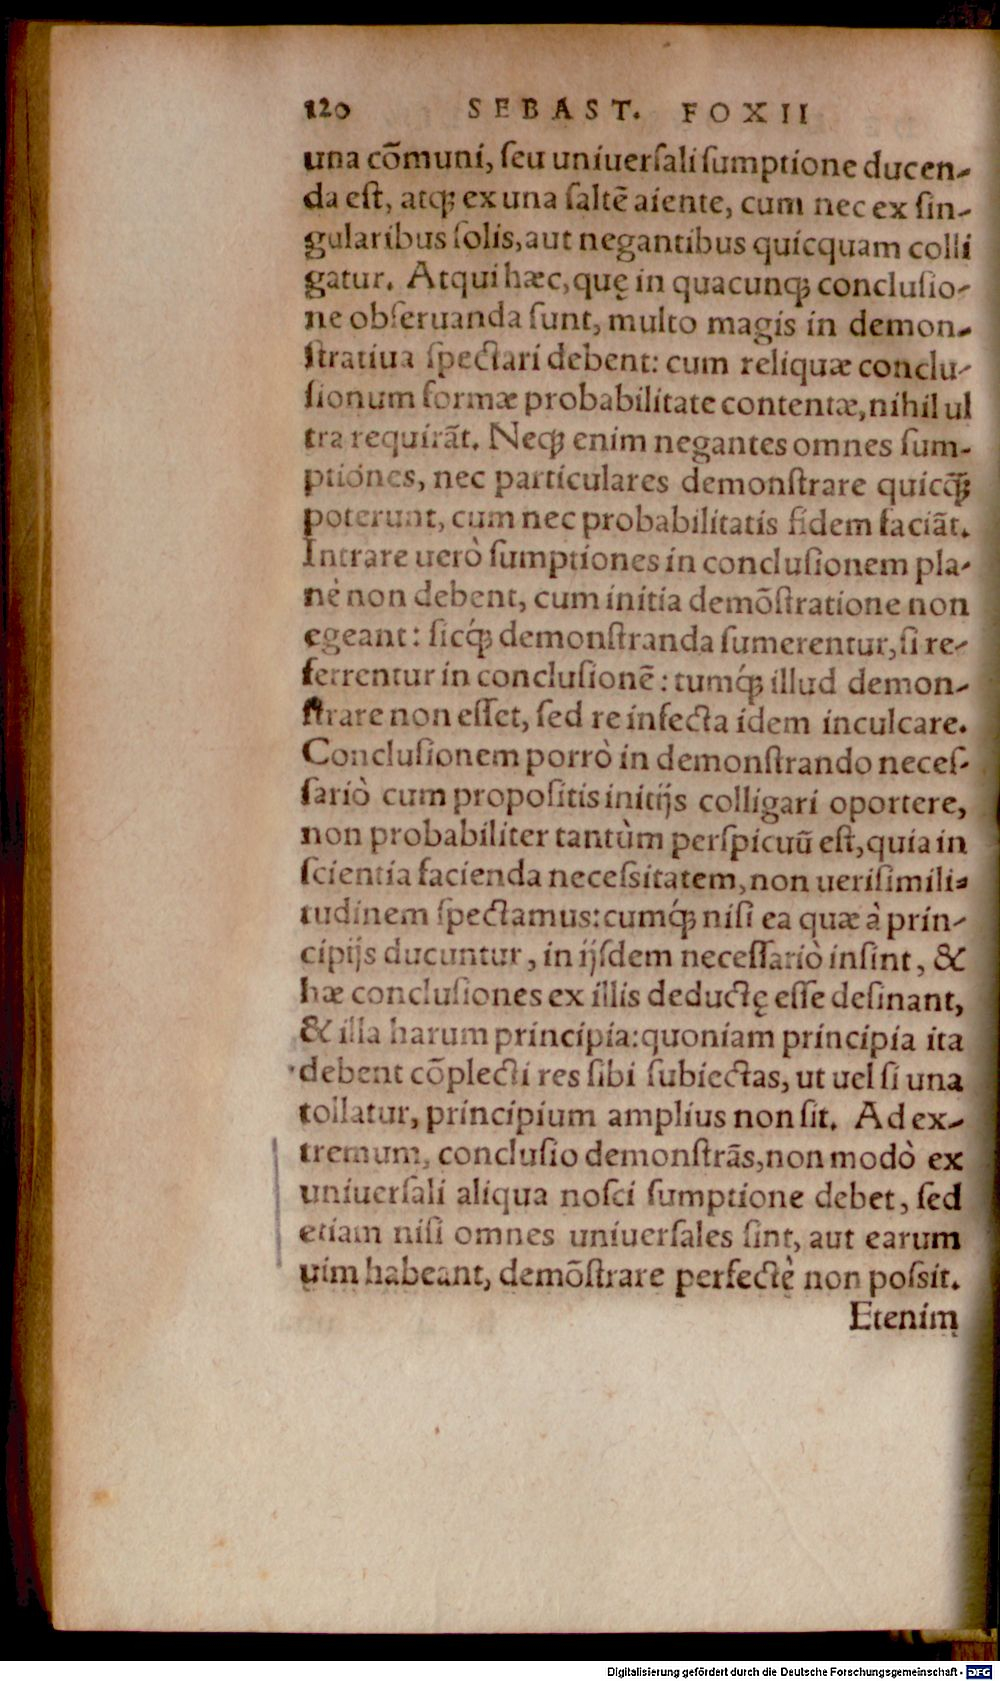 120 SEBAST. FOXII
una cōmuni, ſeu uniuerſali ſumptione ducen-
da eſt, atqꝫ ex una ſaltē aiente, cum nec ex ſin-
gularibus ſolis, aut negantibus quicquam colli
gatur. Atqui hæc, quę in quacunqꝫ concluſio-
ne obſeruanda ſunt, multo magis in demon-
ſtratiua ſpectari debent: cum reliquæ conclu-
ſionum formæ probabilitate contentæ, nihil ul
tra requirāt. Neqꝫ enim negantes omnes ſum-
ptiones, nec particulares demonſtrare quicq̄ꝫ
poterunt, cum nec probabilitatis fidem faciāt.
Intrare uerò ſumptiones in concluſionem pla-
nè non debent, cum initia demōſtratione non
egeant: ſicq́ꝫ demonſtranda ſumerentur, ſi re-
ferrentur in concluſionē: tumq́ꝫ illud demon-
ſtrare non eſſet, ſed re infecta idem inculcare.
Concluſionem porrò in demonſtrando neceſ-
ſariò cum propoſitis initijs colligari oportere,
non probabiliter tantùm perſpicuū eſt, quia in
ſcientia facienda neceſsitatem, non ueriſimili-
tudinem ſpectamus: cumq́ꝫ niſi ea quæ à prin-
cipijs ducuntur, in ijſdem neceſſariò inſint, &
hæ concluſiones ex illis deductę eſſe deſinant,
& illa harum principia: quoniam principia ita
debent cōplecti res ſibi ſubiectas, ut uel ſi una
tollatur, principium amplius non ſit. Ad ex-
tremum, concluſio demonſtrãs, non modò ex
uniuerſali aliqua noſci ſumptione debet, ſed
etiam niſi omnes uniuerſales ſint, aut earum
uim habeant, demōſtrare perfectè non poſsit.
Etenim
Digitalisierung gefördert durch die Deutsche Forschungsgemeinschaft - DFG